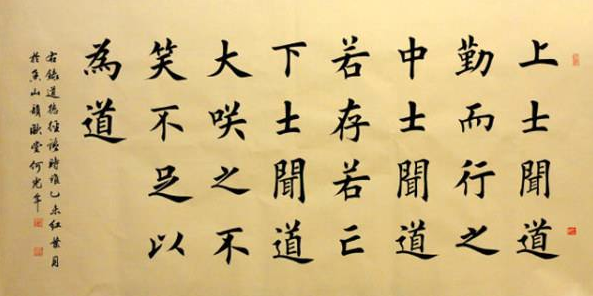 上士聞道
勤而行之
中士聞道
若存若亡
下士聞道
大咲之不
笑不足以
為道
右錄道德經語時維乙未紅葉月
於山堂何